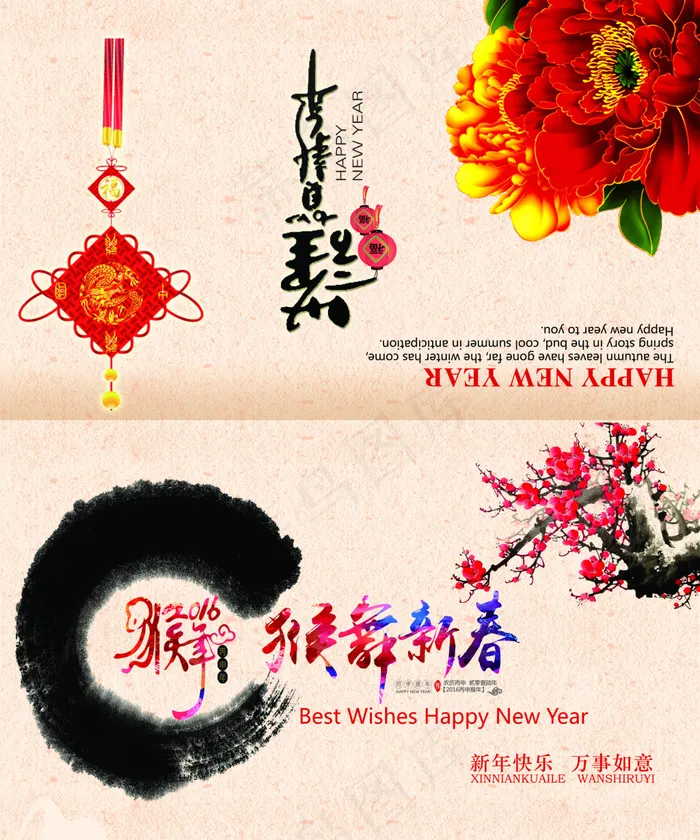 福
HAPPY
NEW YEAR
福
福
HAPPY NEW YEAR
The autumn leaves have gone far, the winter has come,
spring story in the bud, cool summer in anticipation.
Happy new year to you.
2016
猴年
猴舞新春
丙申猴年
HAPPY NEW YEAR
农历丙申 贰零壹陆年
【2016丙申猴年】
Best Wishes Happy New Year
新年快乐 万事如意
XINNIANKUAILE WANSHIRUYI